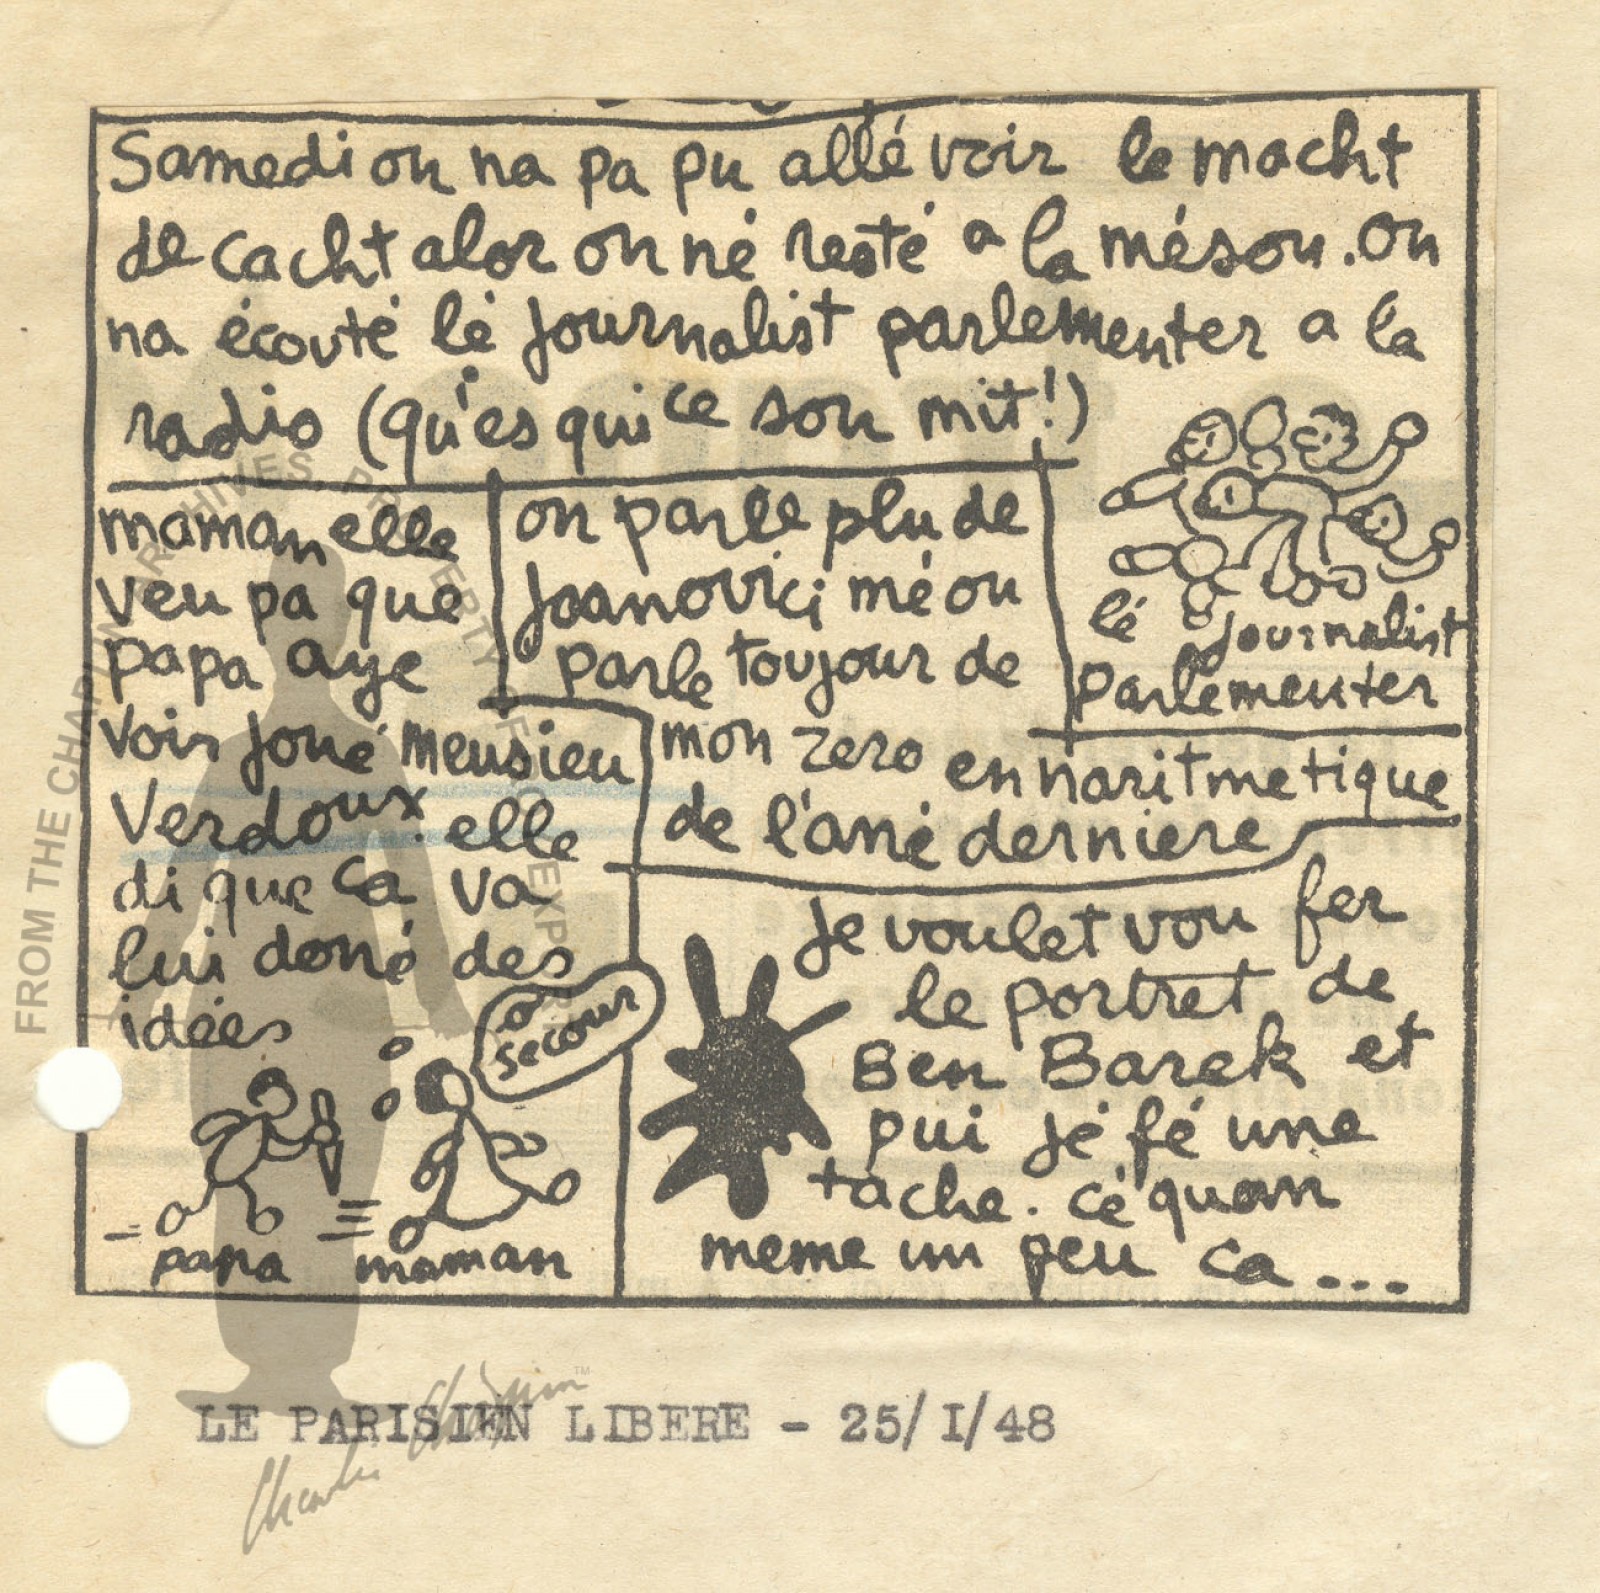 Samedi on na pa pu allé voir le macht
de cacht alor on né resté a la méson. on
na écouté lé journalist parlementer a la
radio (qu'es qui ce son mit!)
maman elle
veu pa que
papa aye
voir joué meusieu
Verdoux. elle
di que ca va
lui doné des
idées
o
secour
papa maman
on parle plu de
Joanovici mé on
parle toujour de
mon zero en naritmetique
de l'ané derniere
lé journalist
parlementer
je voulet vou fer
le portret de
Ben Barek et
pui jé fé une
tache. cé quan
meme un peu ca...
FROM THE CHAPLIN ARCHIVES. PROPERTY OF ROY EXPORT
Charlie Chaplin™
LE PARISIEN LIBERE - 25/I/48